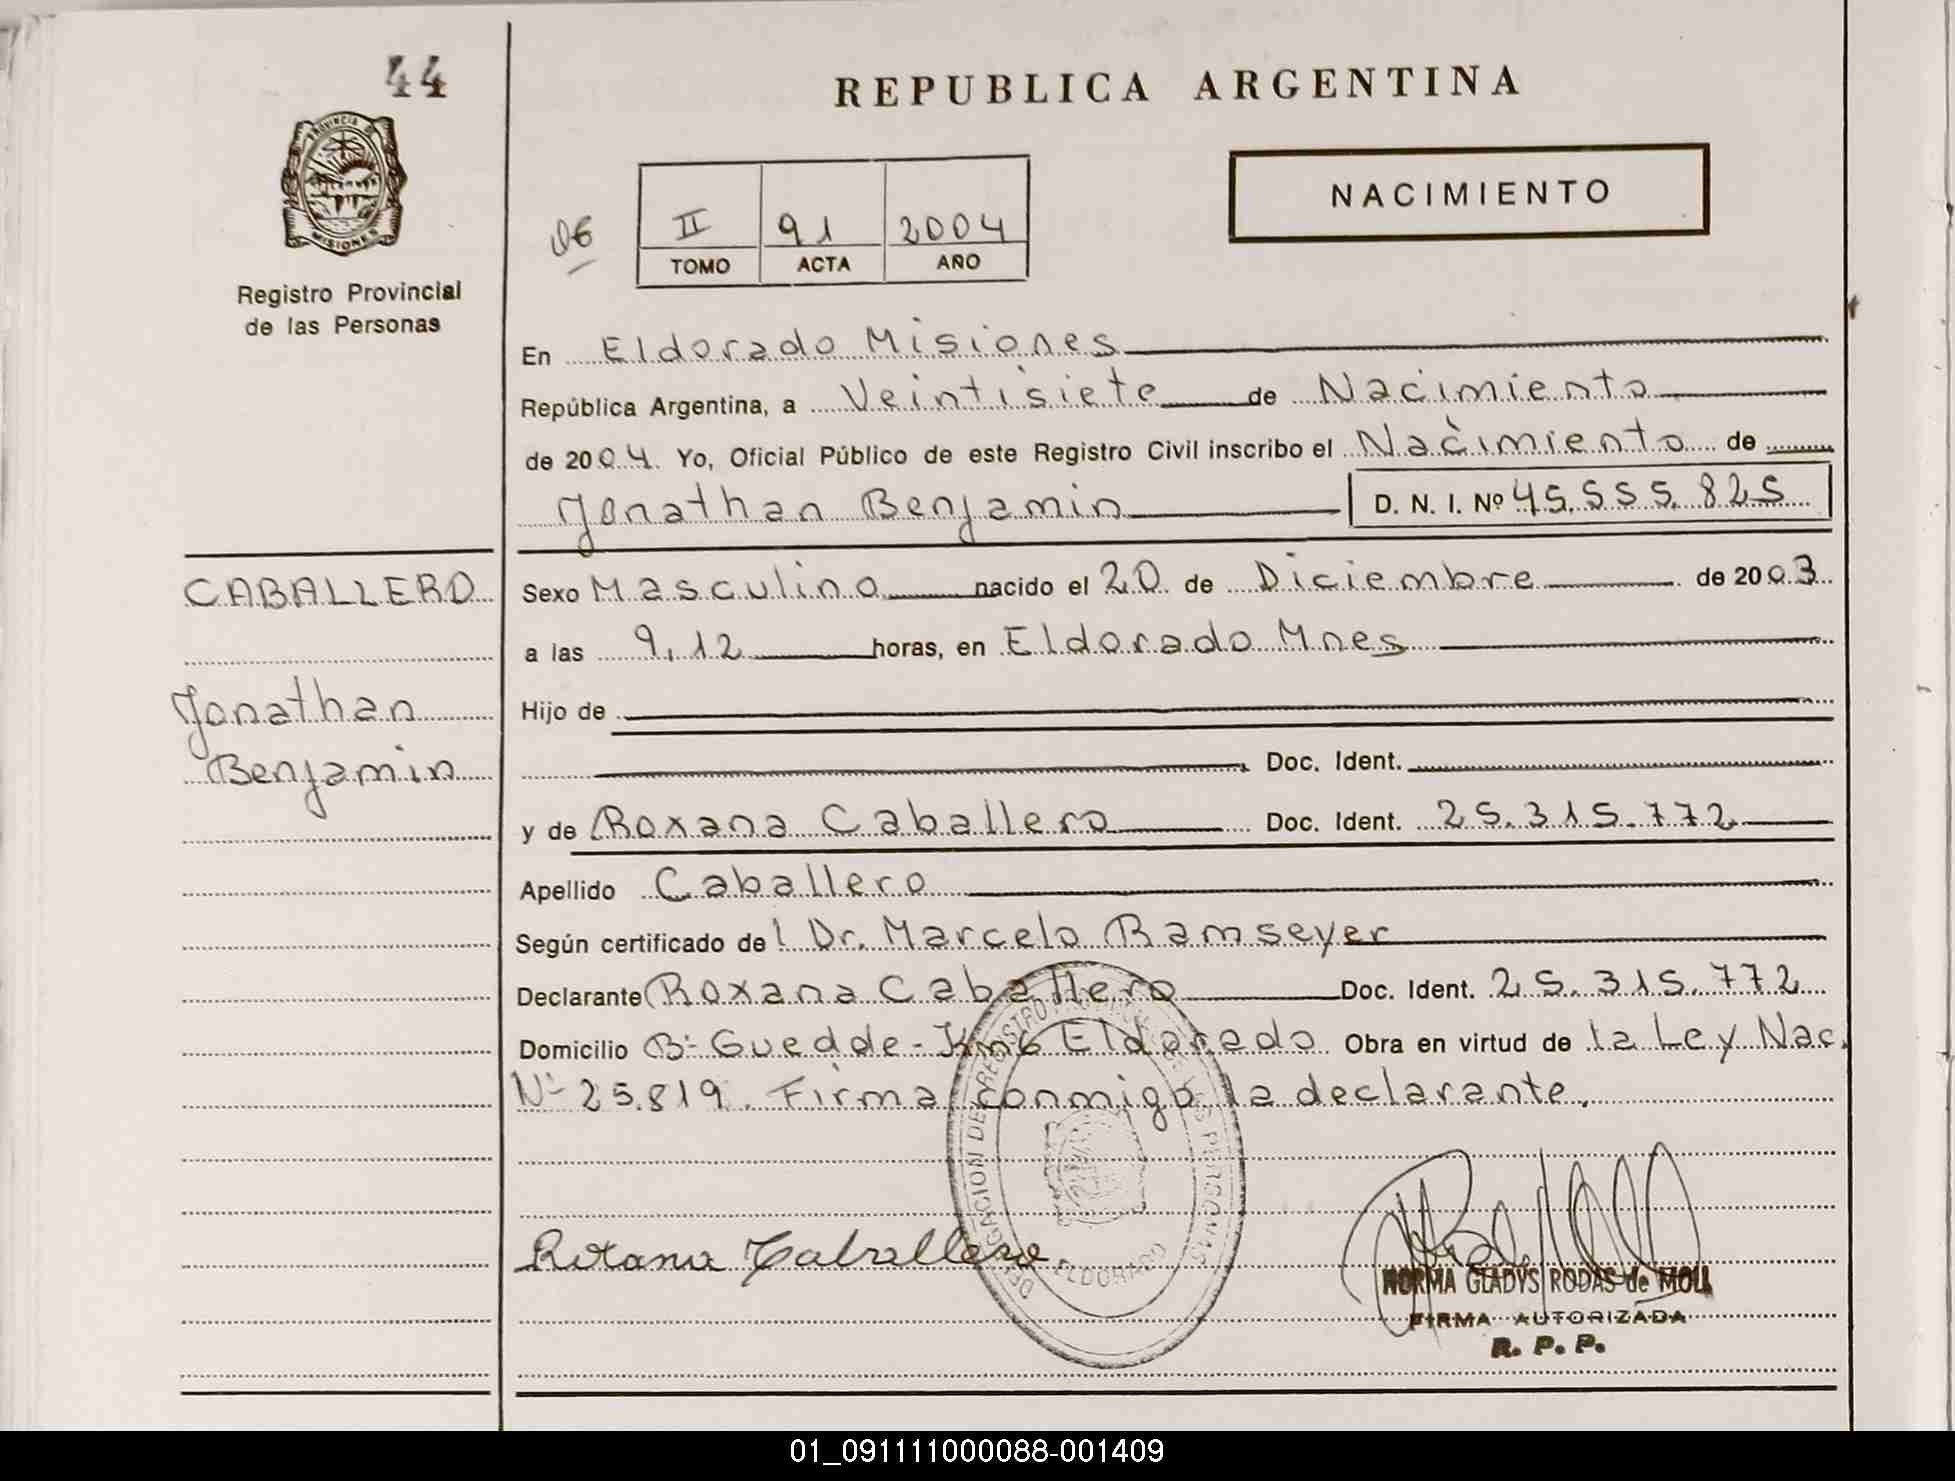 44
REPUBLICA ARGENTINA
PROVINCIA DE
MISIONES
NACIMIENTO
06 II 91 2004
TOMO ACTA AÑO
Registro Provincial
de las Personas
En Eldorado Misiones
República Argentina, a Veintisiete de Nacimiento
de 2004. Yo, Oficial Público de este Registro Civil inscribo el Nacimiento de
Jonathan Benjamin D. N. I. Nº 45.555.825
CABALLERO Sexo Masculino nacido el 20 de Diciembre de 2003
a las 9,12 horas, en Eldorado Mnes
Jonathan Hijo de
Benjamin Doc. Ident.
y de Roxana Caballero Doc. Ident. 25.315.772
Apellido Caballero
Según certificado del Dr. Marcelo Ramseyer
Declarante Roxana Caballero Doc. Ident. 25.315.772
Domicilio Bº Guedde - Km6 Eldorado Obra en virtud de la Ley Nac.
Nº 25.819. Firma conmigo la declarante.
DELEGACION DEL REGISTRO PROVINCIAL DE LAS PERSONAS
ELDORADO
Roxana Caballero
NORMA GLADYS RODAS de MOLL
FIRMA AUTORIZADA
R. P. P.
01_091111000088-001409